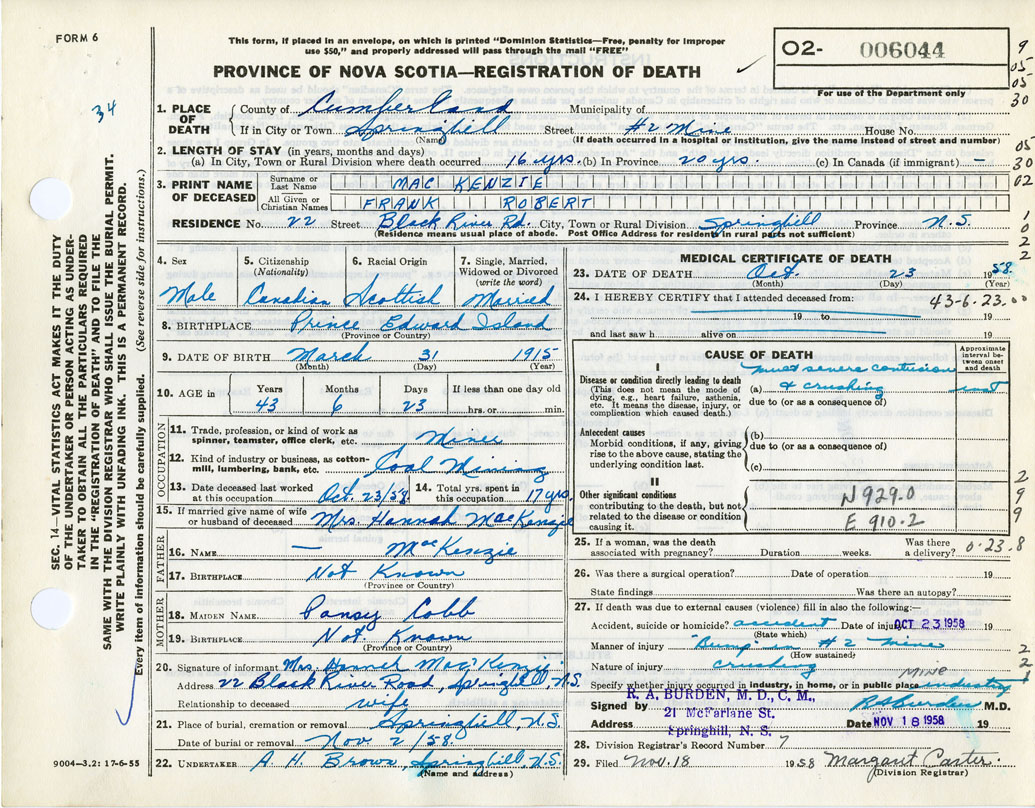 FORM 6
This form, if placed in an envelope, on which is printed "Dominion Statistics—Free, penalty for improper
use $50," and properly addressed will pass through the mail "FREE"
PROVINCE OF NOVA SCOTIA—REGISTRATION OF DEATH
02- 006044
For use of the Department only
9
05
05
30
34
1. PLACE OF DEATH
County of Cumberland Municipality of
If in City or Town Springhill Street #2 Mine House No.
(Name) (If death occurred in a hospital or institution, give the name instead of street and number)
2. LENGTH OF STAY (in years, months and days)
(a) In City, Town or Rural Division where death occurred 16 yrs. (b) In Province 20 yrs. (c) In Canada (if immigrant) —
05
30
3. PRINT NAME OF DECEASED
Surname or Last Name MAC KENZIE
02
All Given or Christian Names FRANK ROBERT
RESIDENCE No. 22 Street Black River Rd. City, Town or Rural Division Springhill Province N.S.
(Residence means usual place of abode. Post Office Address for residents in rural parts not sufficient)
1
0
2
2
SEC. 14 VITAL STATISTICS ACT MAKES IT THE DUTY
OF THE UNDERTAKER OR PERSON ACTING AS UNDER-
TAKER TO OBTAIN ALL THE PARTICULARS REQUIRED
IN THE "REGISTRATION OF DEATH" AND TO FILE THE
SAME WITH THE DIVISION REGISTRAR WHO SHALL ISSUE THE BURIAL PERMIT.
WRITE PLAINLY WITH UNFADING INK. THIS IS A PERMANENT RECORD.
Every item of information should be carefully supplied. (See reverse side for instructions.)
4. Sex
Male
5. Citizenship (Nationality)
Canadian
6. Racial Origin
Scottish
7. Single, Married, Widowed or Divorced (write the word)
Married
8. BIRTHPLACE Prince Edward Island
(Province or Country)
9. DATE OF BIRTH March 31 1915
(Month) (Day) (Year)
10. AGE in Years Months Days If less than one day old
43 6 23 hrs. or min.
OCCUPATION
11. Trade, profession, or kind of work as
spinner, teamster, office clerk, etc. Miner
12. Kind of industry or business, as cotton-
mill, lumbering, bank, etc. Coal Mining
13. Date deceased last worked
at this occupation Oct. 23/58
14. Total yrs. spent in
this occupation 17 yrs.
15. If married give name of wife
or husband of deceased Mrs. Hannah MacKenzie
FATHER
16. NAME — MacKenzie
17. BIRTHPLACE Not Known
(Province or Country)
MOTHER
18. MAIDEN NAME Pansy Cobb
19. BIRTHPLACE Not Known
(Province or Country)
20. Signature of informant Mrs. Hannah MacKenzy
Address 22 Black River Road, Springhill, N.S.
Relationship to deceased wife
21. Place of burial, cremation or removal Springhill, N.S.
Date of burial or removal Nov 2/58.
22. UNDERTAKER A. H. Brown, Springhill, N.S.
(Name and address)
9004—3.2: 17-6-55
MEDICAL CERTIFICATE OF DEATH
23. DATE OF DEATH Oct. 23 1958.
(Month) (Day) (Year)
24. I HEREBY CERTIFY that I attended deceased from: 43-6-23.00
19 to 19
and last saw h alive on 19
CAUSE OF DEATH
Approximate interval between onset and death
I
Disease or condition directly leading to death
(This does not mean the mode of
dying, e.g., heart failure, asthenia,
etc. It means the disease, injury, or
complication which caused death.)
most severe contusion
(a) & crushing inst
due to (or as a consequence of)
Antecedent causes
Morbid conditions, if any, giving
rise to the above cause, stating the
underlying condition last.
(b)
due to (or as a consequence of)
(c)
II
Other significant conditions
contributing to the death, but not
related to the disease or condition
causing it.
N929.0
E 910.2
2
9
9
25. If a woman, was the death
associated with pregnancy? Duration weeks. Was there a delivery? 0.23.8
26. Was there a surgical operation? Date of operation 19
State findings Was there an autopsy?
27. If death was due to external causes (violence) fill in also the following:—
Accident, suicide or homicide? accident Date of injury OCT 23 1958 19
(State which)
Manner of injury "Bump" in #2 mine
(How sustained)
Nature of injury crushing MINE
2
2
1
Specify whether injury occurred in industry, in home, or in public place industry
Signed by R. A. BURDEN, M. D., C. M., RABurden M.D.
Address 21 McFarlane St. Date NOV 18 1958 19
Springhill, N. S.
28. Division Registrar's Record Number 7
29. Filed Nov. 18 1958 Margaret Carter
(Division Registrar)